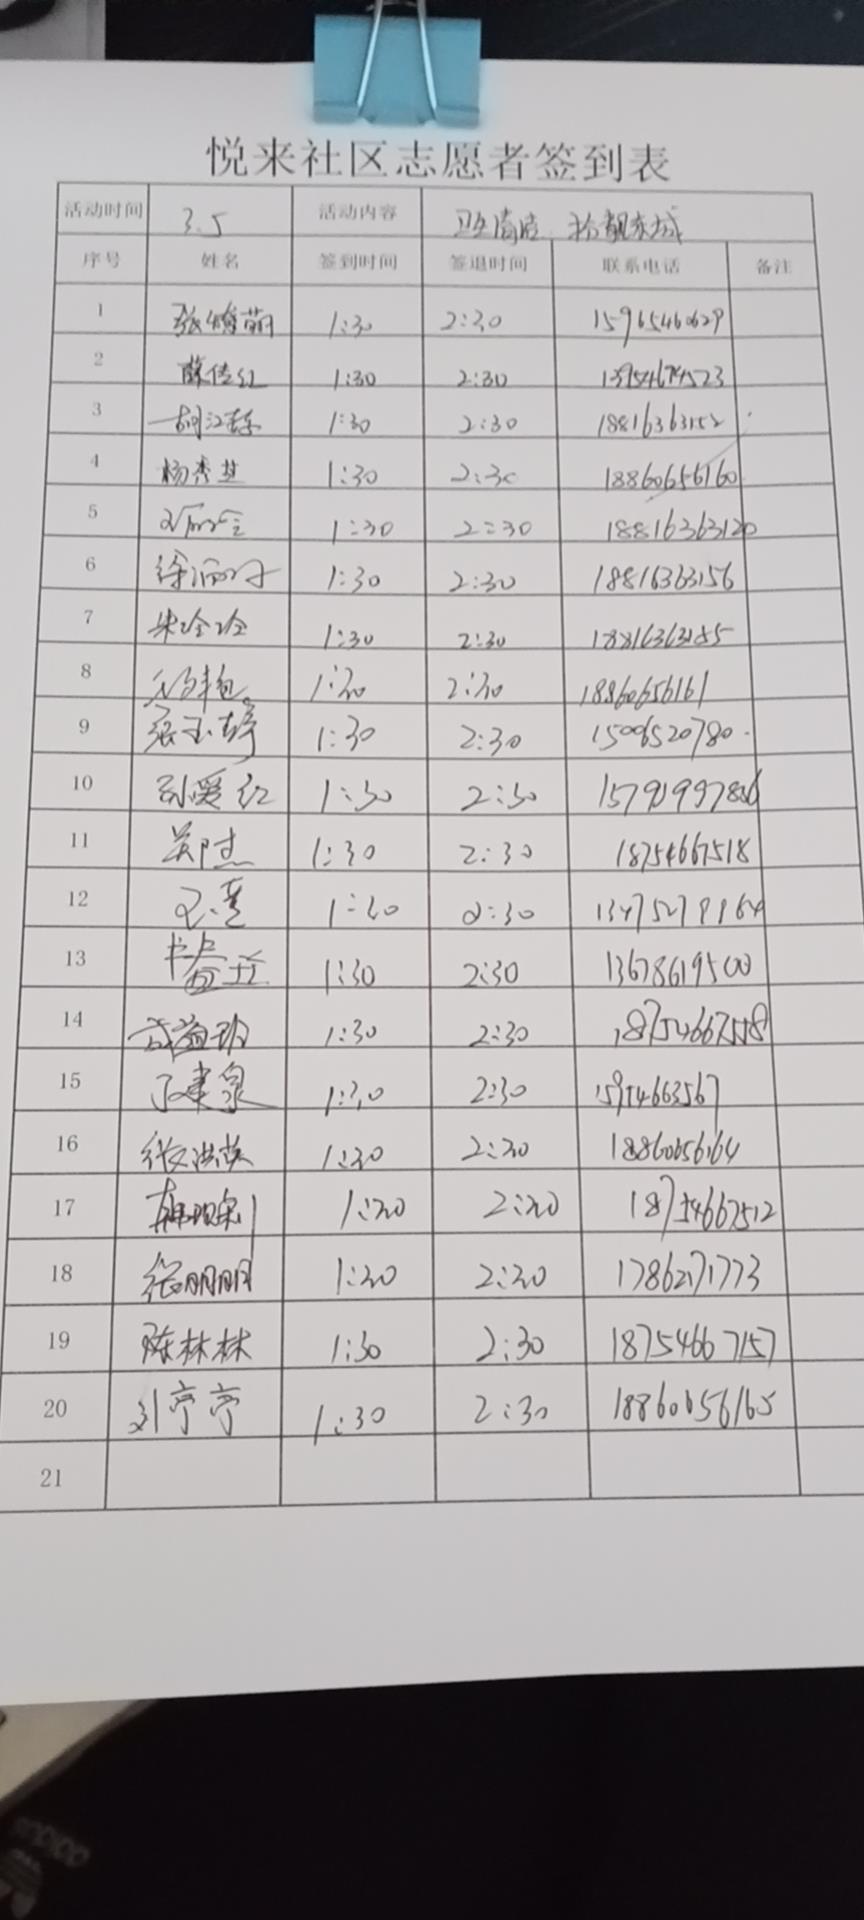 悦来社区志愿者签到表
活动时间 3.5 活动内容 卫生清洁 扮靓东城
序号 姓名 签到时间 签退时间 联系电话 备注
1 1:30 2:30 15965460629
2 薛传红 1:30 2:30 13954674523
3 1:30 2:30 18816363152
4 杨秀芝 1:30 2:30 18860656160
5 1:30 2:30 18816363120
6 1:30 2:30 18816363156
7 朱玲玲 1:30 2:30 18816363185
8 1:30 2:30 18860656161
9 张玉婷 1:30 2:30 15006520780
10 孙爱红 1:30 2:30
11 1:30 2:30 18754667518
12 1:30 2:30
13 1:30 2:30 13678619500
14 1:30 2:30 18754667558
15 丁建泉 1:30 2:30 15954663567
16 张洪英 1:30 2:30 18860656164
17 1:30 2:30 18754667512
18 张明明 1:30 2:30 17862171773
19 陈林林 1:30 2:30 18754667157
20 刘亭亭 1:30 2:30 18860656165
21
adidas